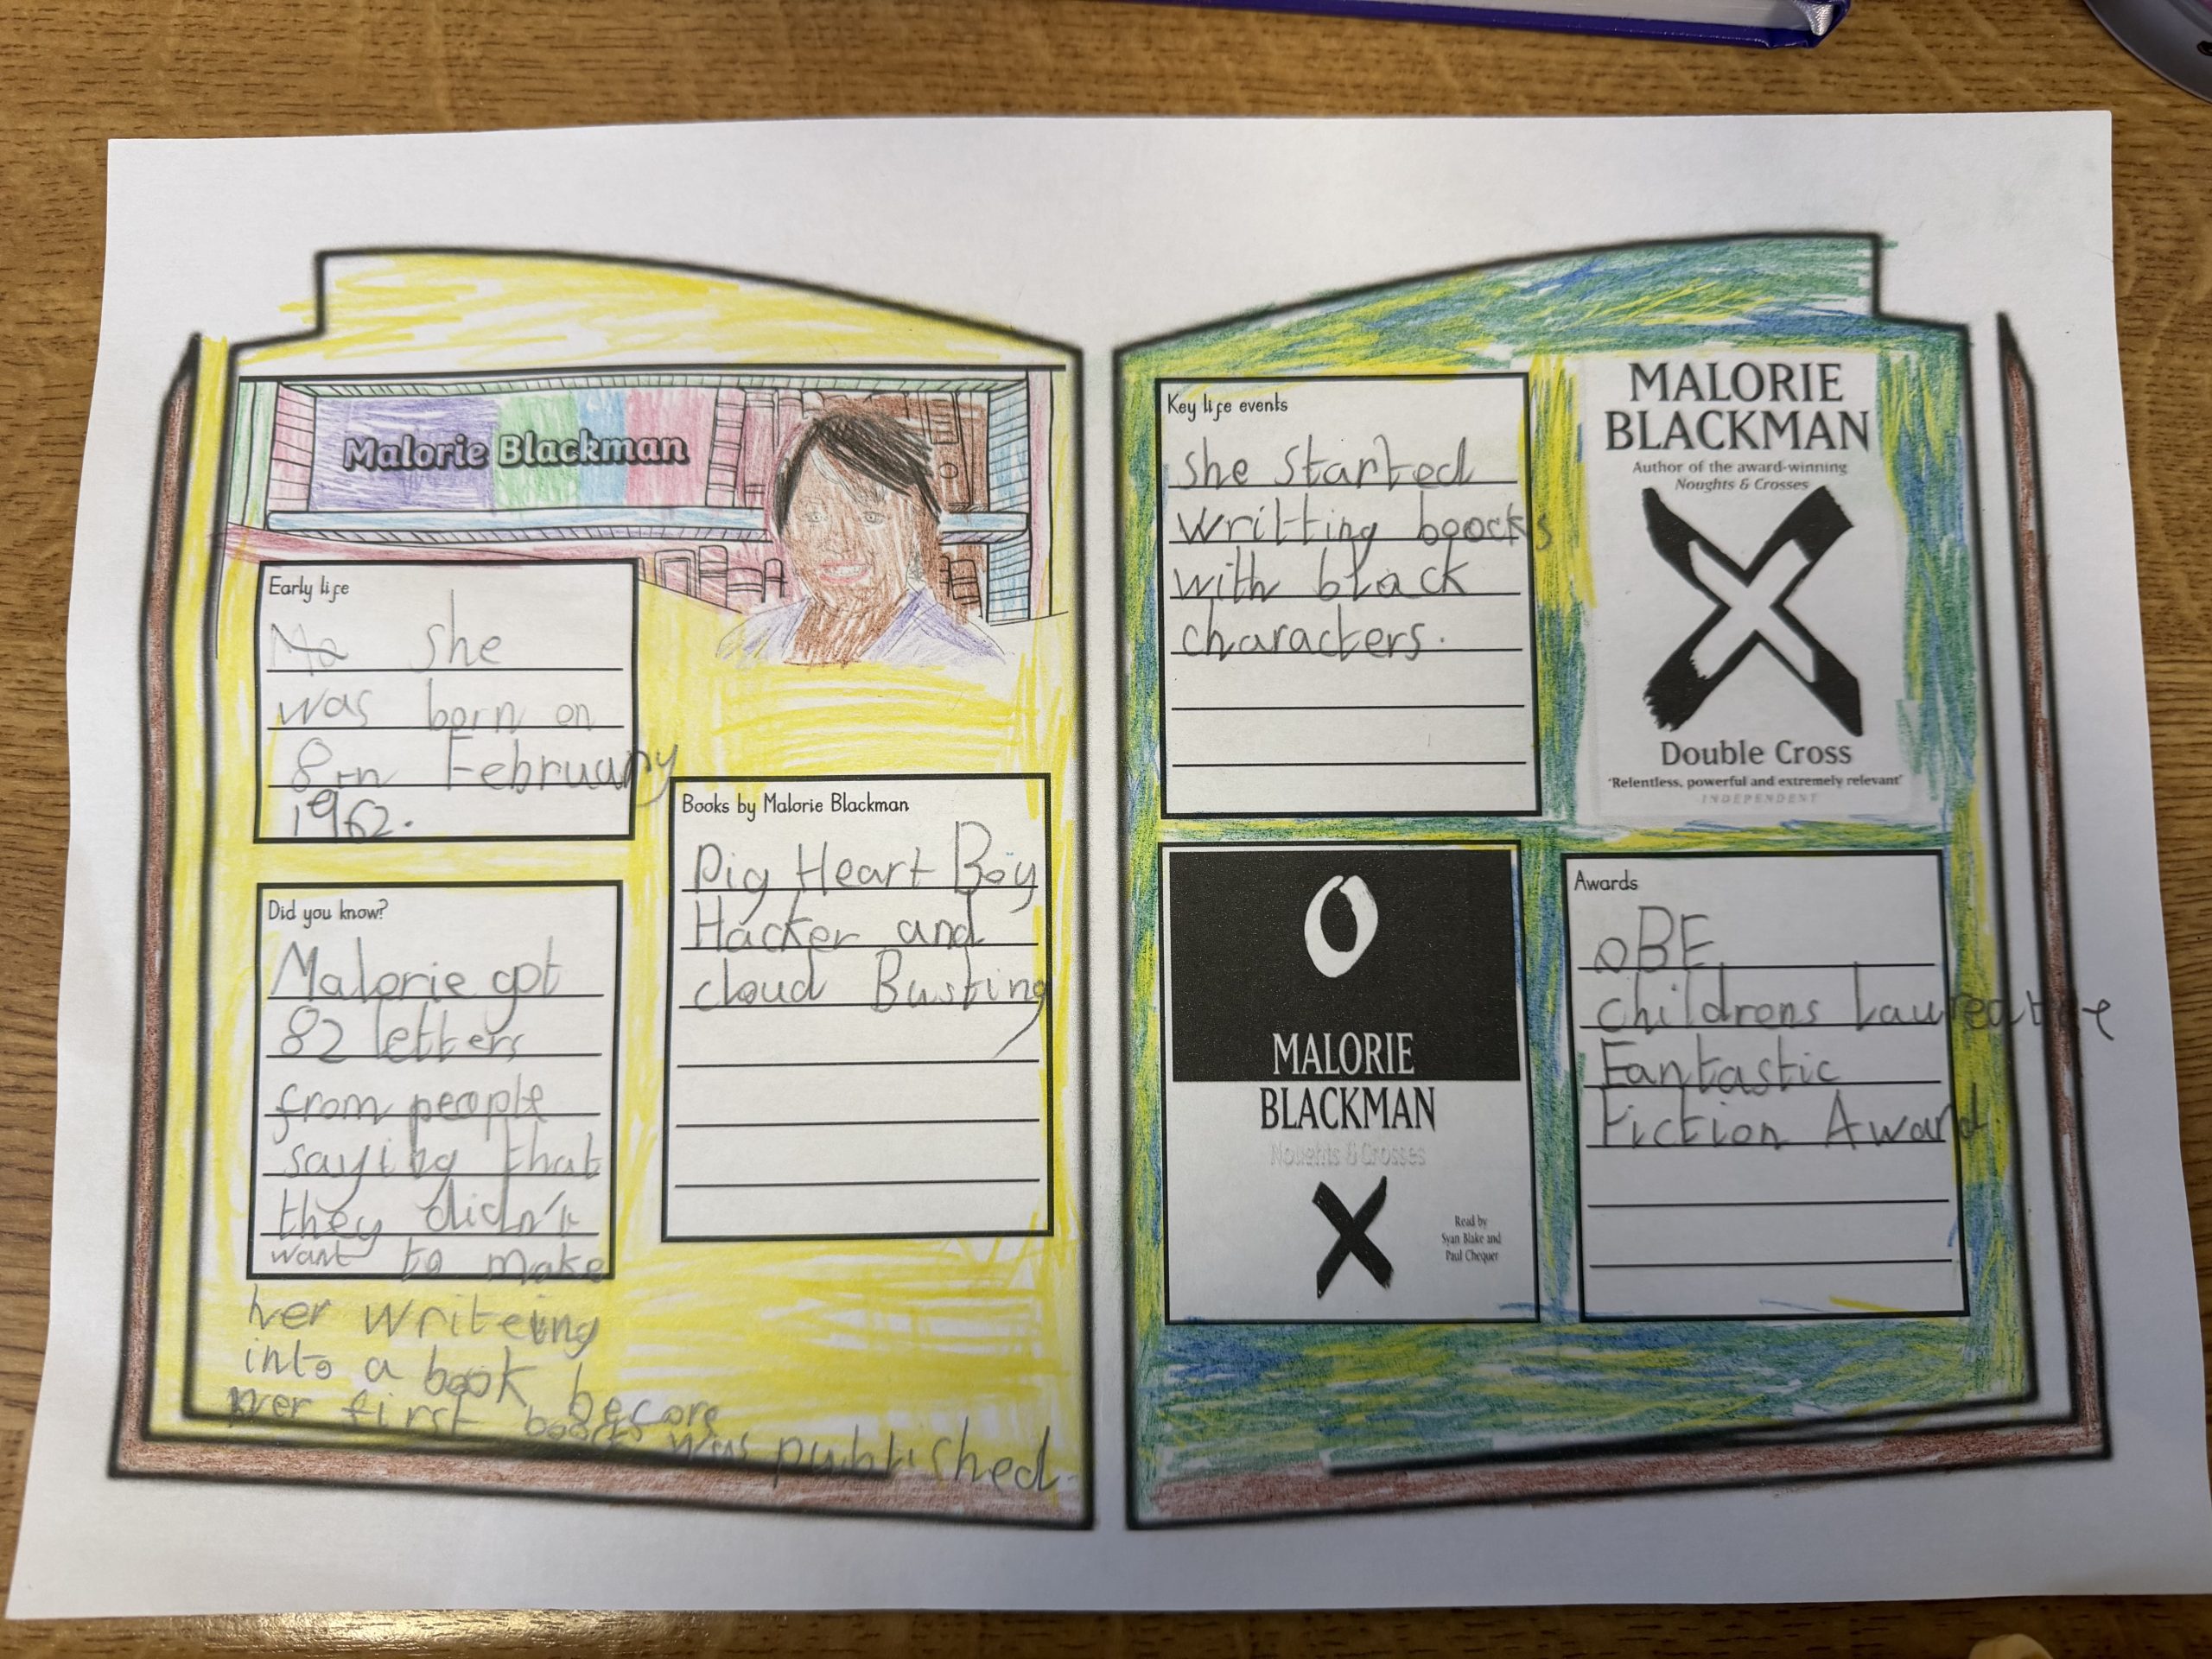 Malorie Blackman
Early life
She
was born on
8th February
1962.
Did you know?
Malorie got
82 letters
from people
saying that
they didn't
want to make
her writeing
into a book before
her first book was published.
Books by Malorie Blackman
Pig Heart Boy
Hacker and
cloud Busting
Key life events
She started
writting boocks
with black
characters.
MALORIE
BLACKMAN
Author of the award-winning
Noughts & Crosses
Double Cross
'Relentless, powerful and extremely relevant'
INDEPENDENT
O
MALORIE
BLACKMAN
Noughts & Crosses
X
Read by
Syan Blake and
Paul Chequer
Awards
OBE
childrens Laureatte
Fantastic
Fiction Award.